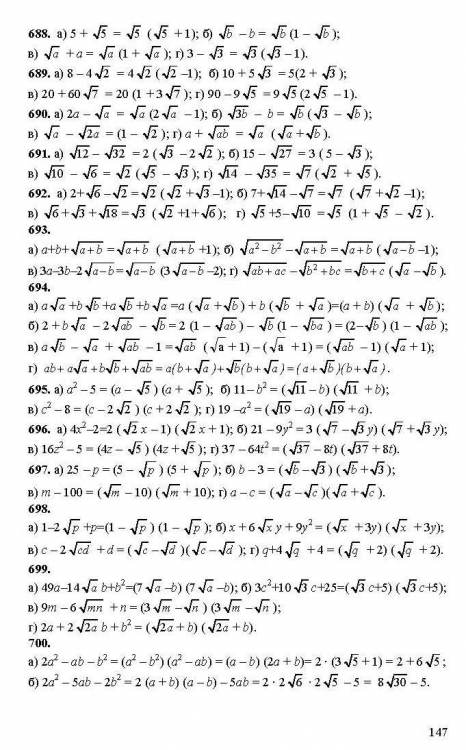 688. а) 5 + √5 = √5 (√5 +1); б) √b – b = √b (1 – √b);
в) √a + a = √a (1 + √a); г) 3 – √3 = √3 (√3 – 1).
689. а) 8 – 4√2 = 4√2 (√2 –1); б) 10 + 5√3 = 5(2 + √3);
в) 20 + 60√7 = 20 (1 + 3√7); г) 90 – 9√5 = 9√5 (2√5 – 1).
690. а) 2a – √a = √a (2√a – 1); б) √3b – b = √b (√3 – √b);
в) √a – √2a = (1 – √2); г) a + √ab = √a (√a + √b).
691. а) √12 – √32 = 2 (√3 – 2√2); б) 15 – √27 = 3 (5 – √3);
в) √10 – √6 = √2 (√5 – √3); г) √14 – √35 = √7 (√2 + √5).
692. а) 2+√6 – √2 = √2 (√2 + √3 –1); б) 7+√14 – √7 = √7 (√7 + √2 –1);
в) √6 + √3 + √18 = √3 (√2 +1+√6); г) √5 +5–√10 = √5 (1 + √5 – √2).
693.
а) a+b+√(a+b) = √(a+b) (√(a+b) +1); б) √(a²–b²) – √(a+b) = √(a+b) (√(a–b) –1);
в) 3a–3b–2√(a–b) = √(a–b) (3√(a–b) –2); г) √(ab+ac) – √(b²+bc) = √(b+c) (√a – √b).
694.
а) a√a + b√b + a√b + b√a = a (√a + √b) + b (√b + √a) = (a + b) (√a + √b);
б) 2 + b√a – 2√ab – √b = 2 (1 – √ab) – √b (1 – √ba) = (2–√b) (1 – √ab);
в) a√b – √a + √ab – 1 = √ab (√a + 1) – (√a + 1) = (√ab – 1) (√a + 1);
г) ab + a√a + b√b + √ab = a(b + √a) + √b(b + √a) = (a + √b)(b + √a).
695. а) a² – 5 = (a – √5) (a + √5); б) 11– b² = (√11 – b) (√11 + b);
в) c² – 8 = (c – 2√2) (c + 2√2); г) 19 – a² = (√19 – a) (√19 + a).
696. а) 4x²–2=2 (√2x – 1) (√2x + 1); б) 21 – 9y² = 3 (√7 – √3y) (√7 + √3y);
в) 16z² – 5 = (4z – √5) (4z + √5); г) 37 – 64t² = (√37 – 8t) (√37 + 8t).
697. а) 25 – p = (5 – √p) (5 + √p); б) b – 3 = (√b – √3) (√b + √3);
в) m – 100 = (√m – 10) (√m + 10); г) a – c = (√a – √c)(√a + √c).
698.
а) 1–2√p +p=(1 – √p) (1 – √p); б) x + 6√xy + 9y² = (√x + 3y) (√x + 3y);
в) c – 2√cd + d = (√c – √d)(√c – √d); г) q+4√q + 4 = (√q + 2) (√q + 2).
699.
а) 49a–14√a b+b²=(7√a –b) (7√a –b); б) 3c²+10√3 c+25=(√3 c+5) (√3 c+5);
в) 9m – 6√mn + n = (3√m – √n) (3√m – √n);
г) 2a + 2√2a b + b² = (√2a + b) (√2a + b).
700.
а) 2a² – ab – b² = (a² – b²) (a² – ab) = (a – b) (2a + b)= 2 · (3√5 + 1) = 2 + 6√5;
б) 2a² – 5ab – 2b² = 2 (a + b) (a – b) – 5ab = 2 · 2√6 · 2√5 – 5 = 8√30 – 5.
147